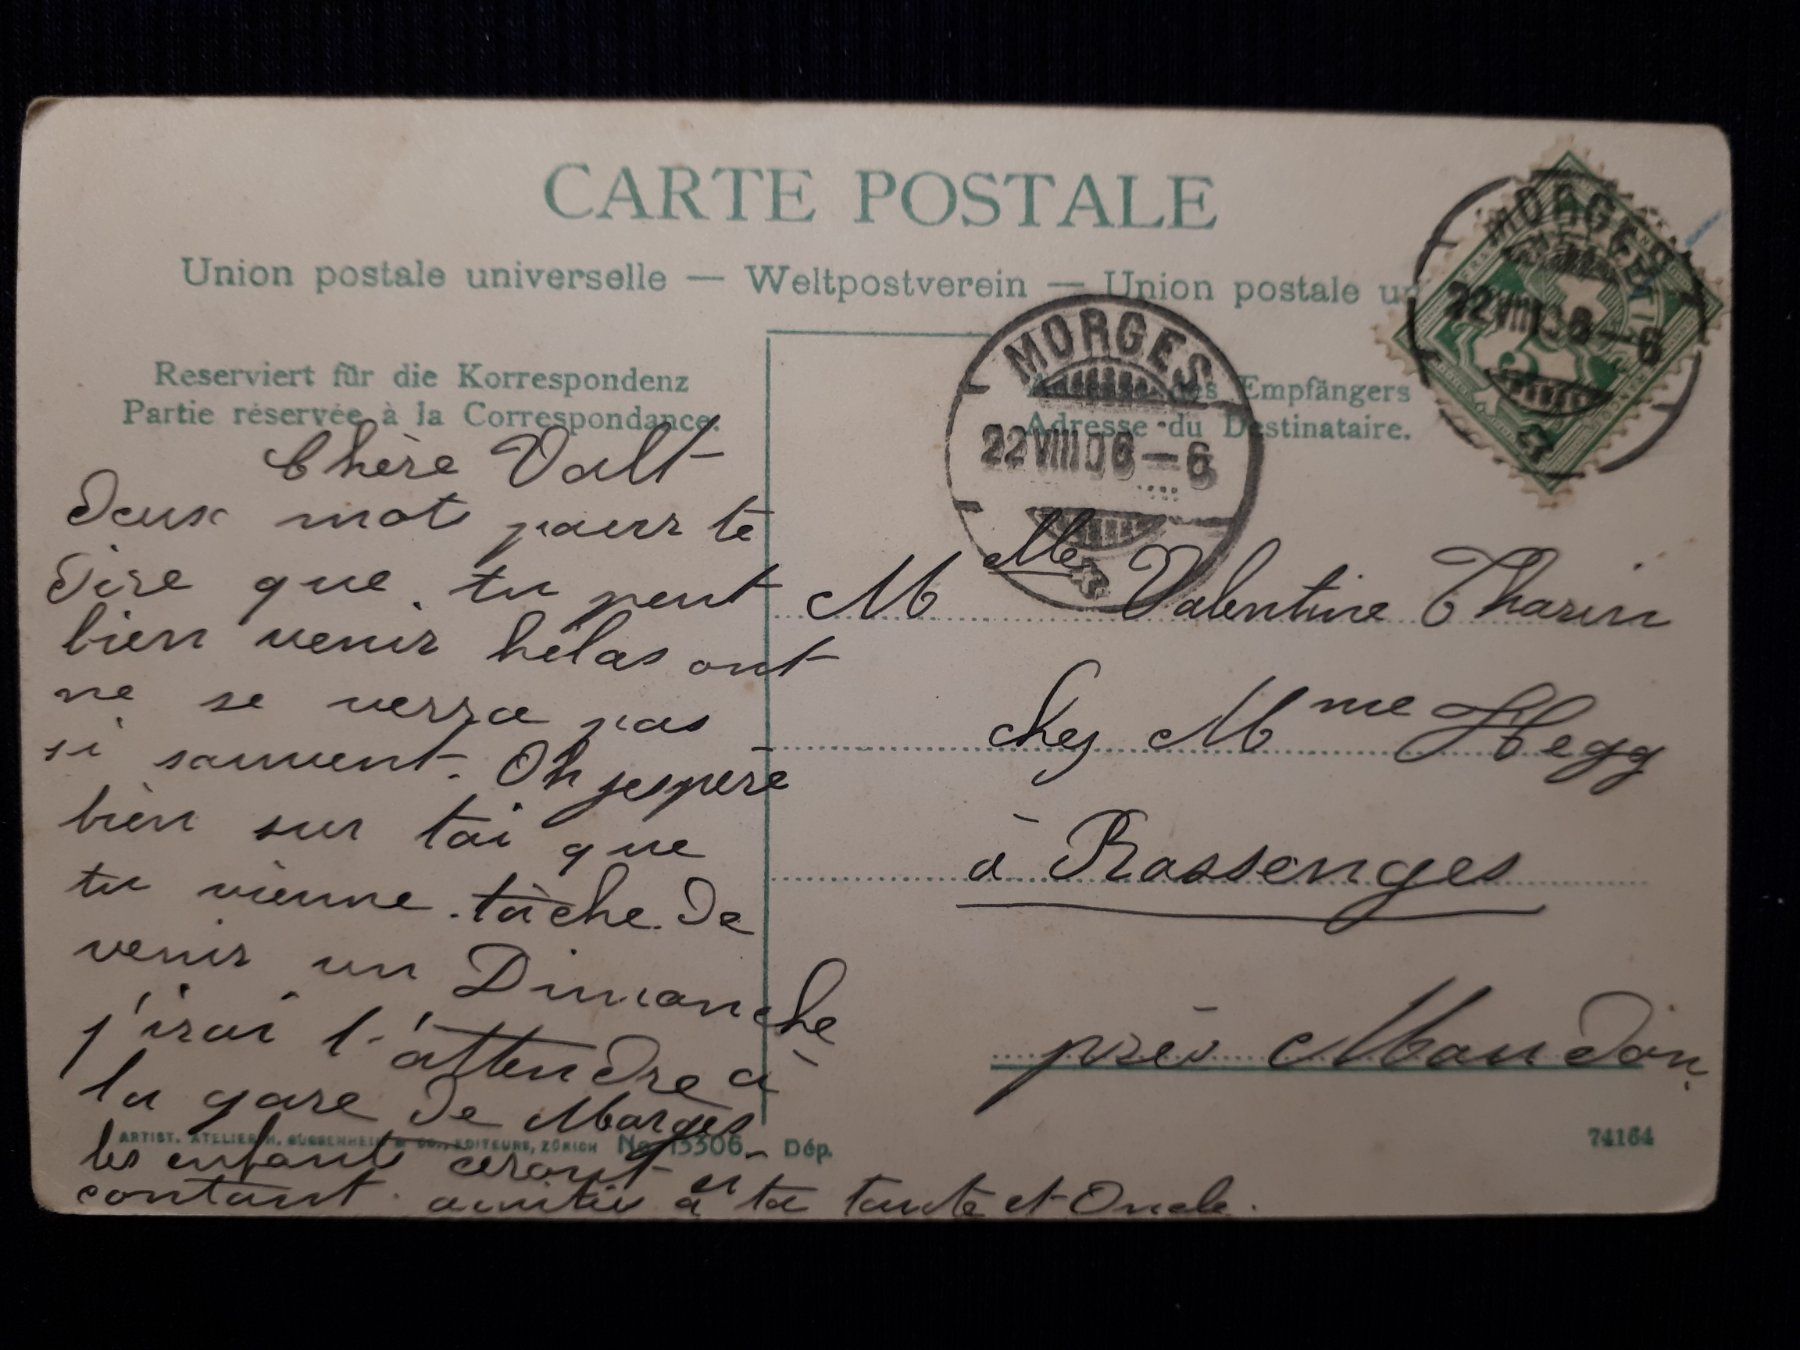 CARTE POSTALE
Union postale universelle — Weltpostverein — Union postale
Reserviert für die Korrespondenz
Partie réservée à la Correspondance.
des Empfängers
Adresse du Destinataire.
MORGES
22 VIII 06 — 6
MORGES
22 VIII 06 — 6
5
Chère Valt
Deux mots pour te
dire que tu peut
bien venir hélas ont
ne se verra pas
si souvent. Oh jespère
bien sur toi que
tu vienne. tâche de
venir un Dimanche
j'irai t'attendre à
la gare de Morges
les enfants seront si
contant. amitiés à ta tante et Oncle.
Mlle Valentine Tharin
chez Mme Hegg
à Rossenges
près Moudon.
ARTIST. ATELIER H. GUGGENHEIM & CO., EDITEURS, ZÜRICH No. 13306 Dép.
74164